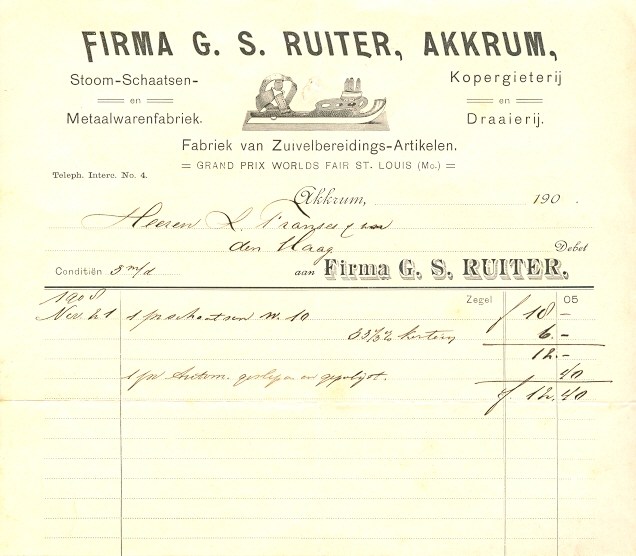 FIRMA G. S. RUITER, AKKRUM,
Stoom-Schaatsen-
en
Metaalwarenfabriek.
Kopergieterij
en
Draaierij.
Fabriek van Zuivelbereidings-Artikelen.
GRAND PRIX WORLDS FAIR ST. LOUIS (Mo.)
Teleph. Interc. No. 4.
Akkrum, 190 .
Heeren L. Franse &
den Haag
Debet
Conditiën 3 m/d aan Firma G. S. RUITER.
1908 Zegel 05
Nov. 21 1 pr schaatsen No. 10 f 18.-
33⅓% korting 6.-
12.-
1 pr geslepen en gepolijst. 40
f 12.40